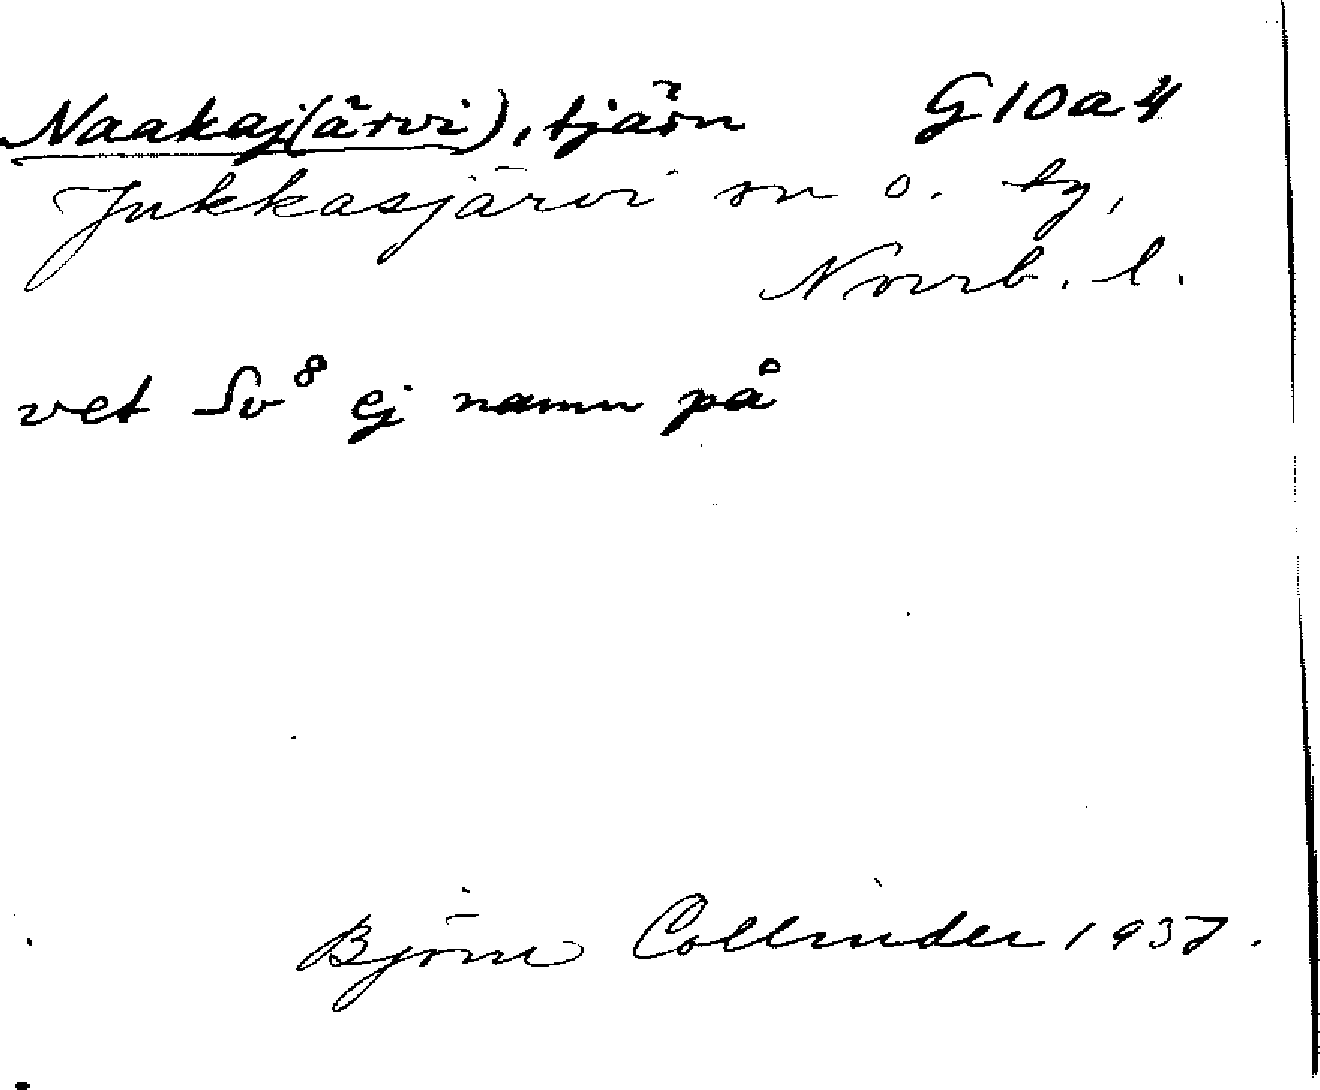 Naakaj(ärvi), tjärn G10a4
Jukkasjärvi sn o. tg,
Norrb. l.
vet Sv⁸ ej namn på
Björn Collinder 1937.